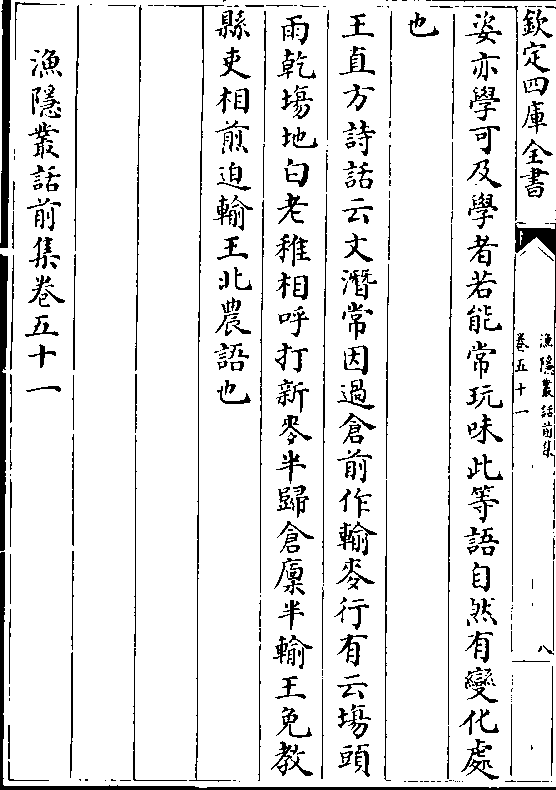 欽定四庫全書
漁隱叢話前集
卷五十一
八
姿亦學可及學者若能常玩味此等語自然有變化處
也
王直方詩話云文潛常因過倉前作輸麥行有云塲頭
雨乾塲地白老稚相呼打新麥半歸倉廩半輸王免教
縣吏相煎迫輸王北農語也
漁隱叢話前集卷五十一